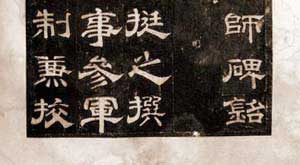 師碑銘
挺之撰
事參軍
制兼挍